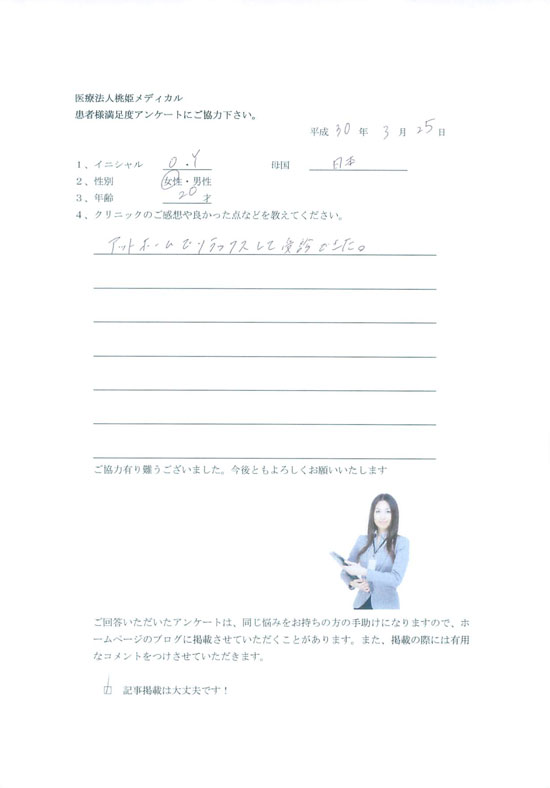 医療法人桃姫メディカル
患者様満足度アンケートにご協力下さい。
平成 30 年 3 月 25 日
1、イニシャル O . Y 母国 日本
2、性別 女性・男性
3、年齢 20 才
4、クリニックのご感想や良かった点などを教えてください。
アットホームでリラックスして受診できた。
ご協力有り難うございました。今後ともよろしくお願いいたします
ご回答いただいたアンケートは、同じ悩みをお持ちの方の手助けになりますので、ホ
ームページのブログに掲載させていただくことがあります。また、掲載の際には有用
なコメントをつけさせていただきます。
記事掲載は大丈夫です！